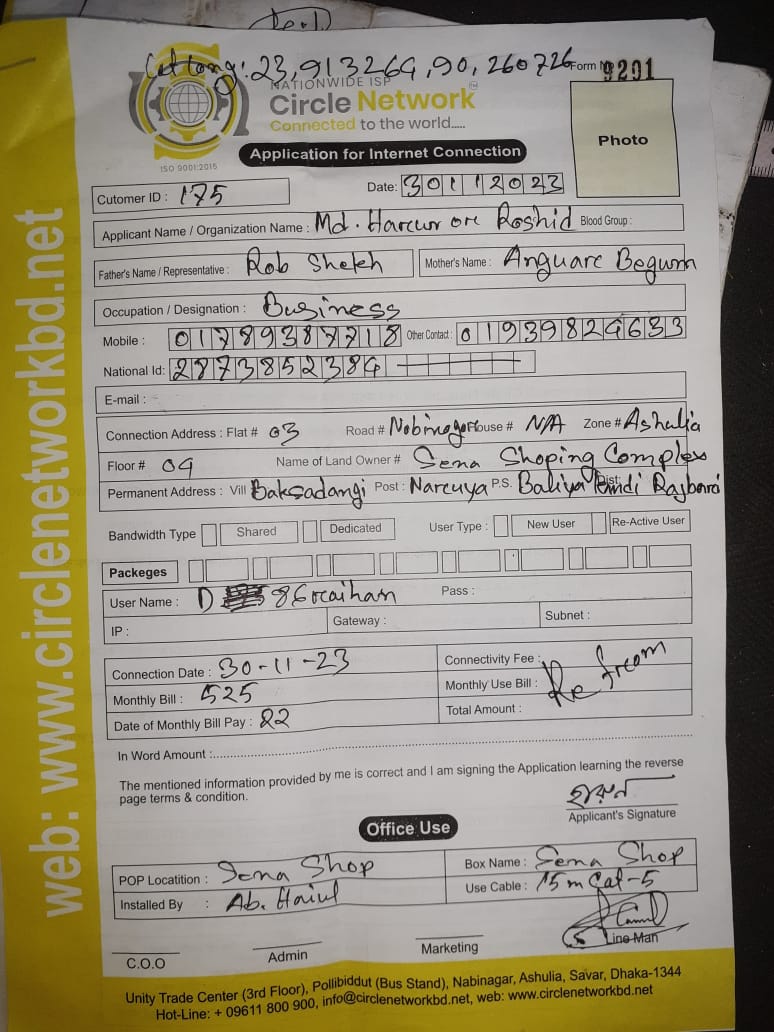 Lat Long: 23,913264,90,260726 Form No 9201
NATIONWIDE ISP
Circle Network
Connected to the world.....
ISO 9001:2015
Application for Internet Connection
Photo
Cutomer ID : 175 Date: 30112023
Applicant Name / Organization Name : Md. Harcun ore Roshid Blood Group :
Father's Name / Representative : Rob Shekh Mother's Name : Anguare Begum
Occupation / Designation : Business
Mobile : 01789387718 Other Contact : 01939824633
National Id: 2873852384
E-mail :
Connection Address : Flat # 03 Road # Nobinagor House # N/A Zone # Ashulia
Floor # 04 Name of Land Owner # Sena Shoping Complex
Permanent Address : Vill Baksadangi Post : Narcuya P.S. Baliya Kandi Dist: Rajbari
Bandwidth Type Shared Dedicated User Type : New User Re-Active User
Packeges
User Name : D 86rcaihan Pass :
IP : Gateway : Subnet :
Connection Date : 30-11-23 Connectivity Fee :
Monthly Bill : 525 Monthly Use Bill : Re frcom
Date of Monthly Bill Pay : 22 Total Amount :
In Word Amount :
The mentioned information provided by me is correct and I am signing the Application learning the reverse
page terms & condition.
হারুন
Applicant's Signature
Office Use
POP Locatition : Sena Shop Box Name : Sena Shop
Installed By : Ab. Haiul Use Cable : 15m Cat-5
C.O.O Admin Marketing Line Man
Unity Trade Center (3rd Floor), Pollibiddut (Bus Stand), Nabinagar, Ashulia, Savar, Dhaka-1344
Hot-Line: + 09611 800 900, info@circlenetworkbd.net, web: www.circlenetworkbd.net
web: www.circlenetworkbd.net